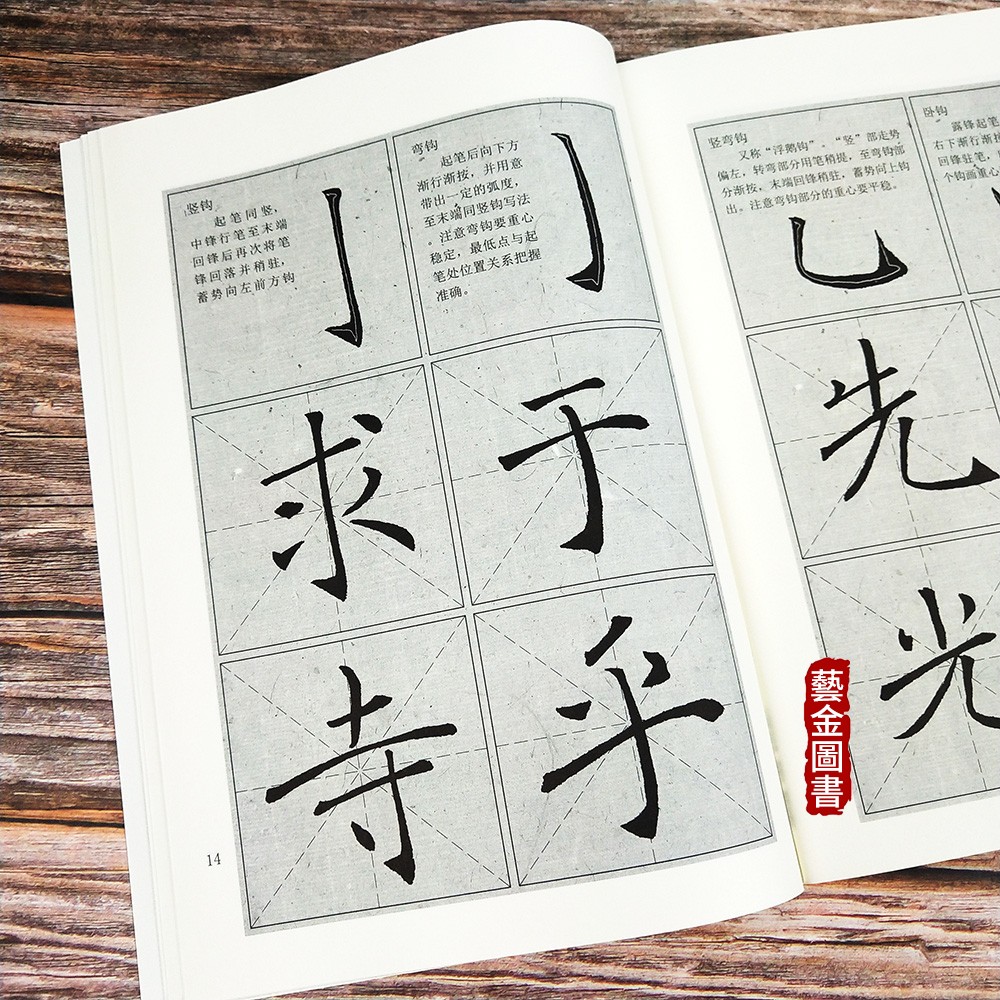 竖钩
起笔同竖，
中锋行笔至末端
回锋后再次将笔
锋回落并稍驻，
蓄势向左前方钩
弯钩
起笔后向下方
渐行渐按，并用意
带出一定的弧度，
至末端同竖钩写法
。注意弯钩要重心
稳定，最低点与起
笔处位置关系把握
准确。
求
于
寺
乎
14
竖弯钩
又称“浮鹅钩”。“竖”部走势
偏左，转弯部分用笔稍提，至弯钩部
分渐按，末端回锋稍驻，蓄势向上钩
出。注意弯钩部分的重心要平稳。
先
光
卧钩
露锋起笔
右下渐行渐按
回锋驻笔，
个钩画重心
藝金圖書